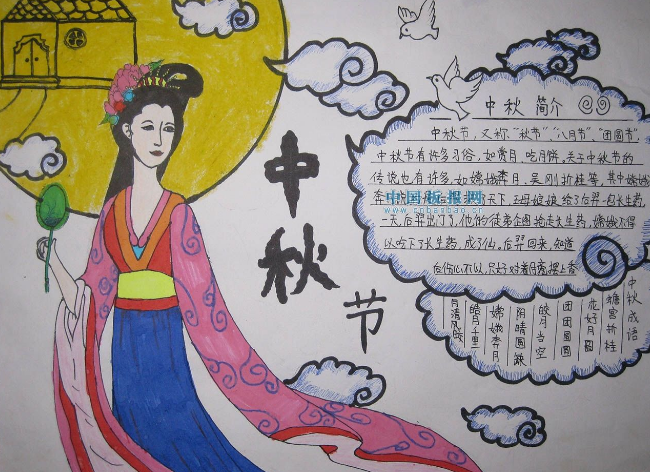 中秋节
中秋 简介
中秋节，又称"秋节"、"八月节"、"团圆节"
中秋节有许多习俗，如赏月、吃月饼。关于中秋节的
传说也有许多，如嫦娥奔月，吴刚折桂等，其中嫦娥
奔 天下，王母娘娘给了后羿一包长生药，
中国板报网
www.cnbanbao.cn
一天，后羿出门了，他的徒弟企图抢走长生药，嫦娥不得
以吃下了长生药，成了仙。后羿回来，知道
后伤心不以，只好对着月亮摆上香
中秋成语
蟾宫折桂
花好月圆
团团圆圆
皎月当空
阴晴圆缺
嫦娥奔月
皓月千里
月清风